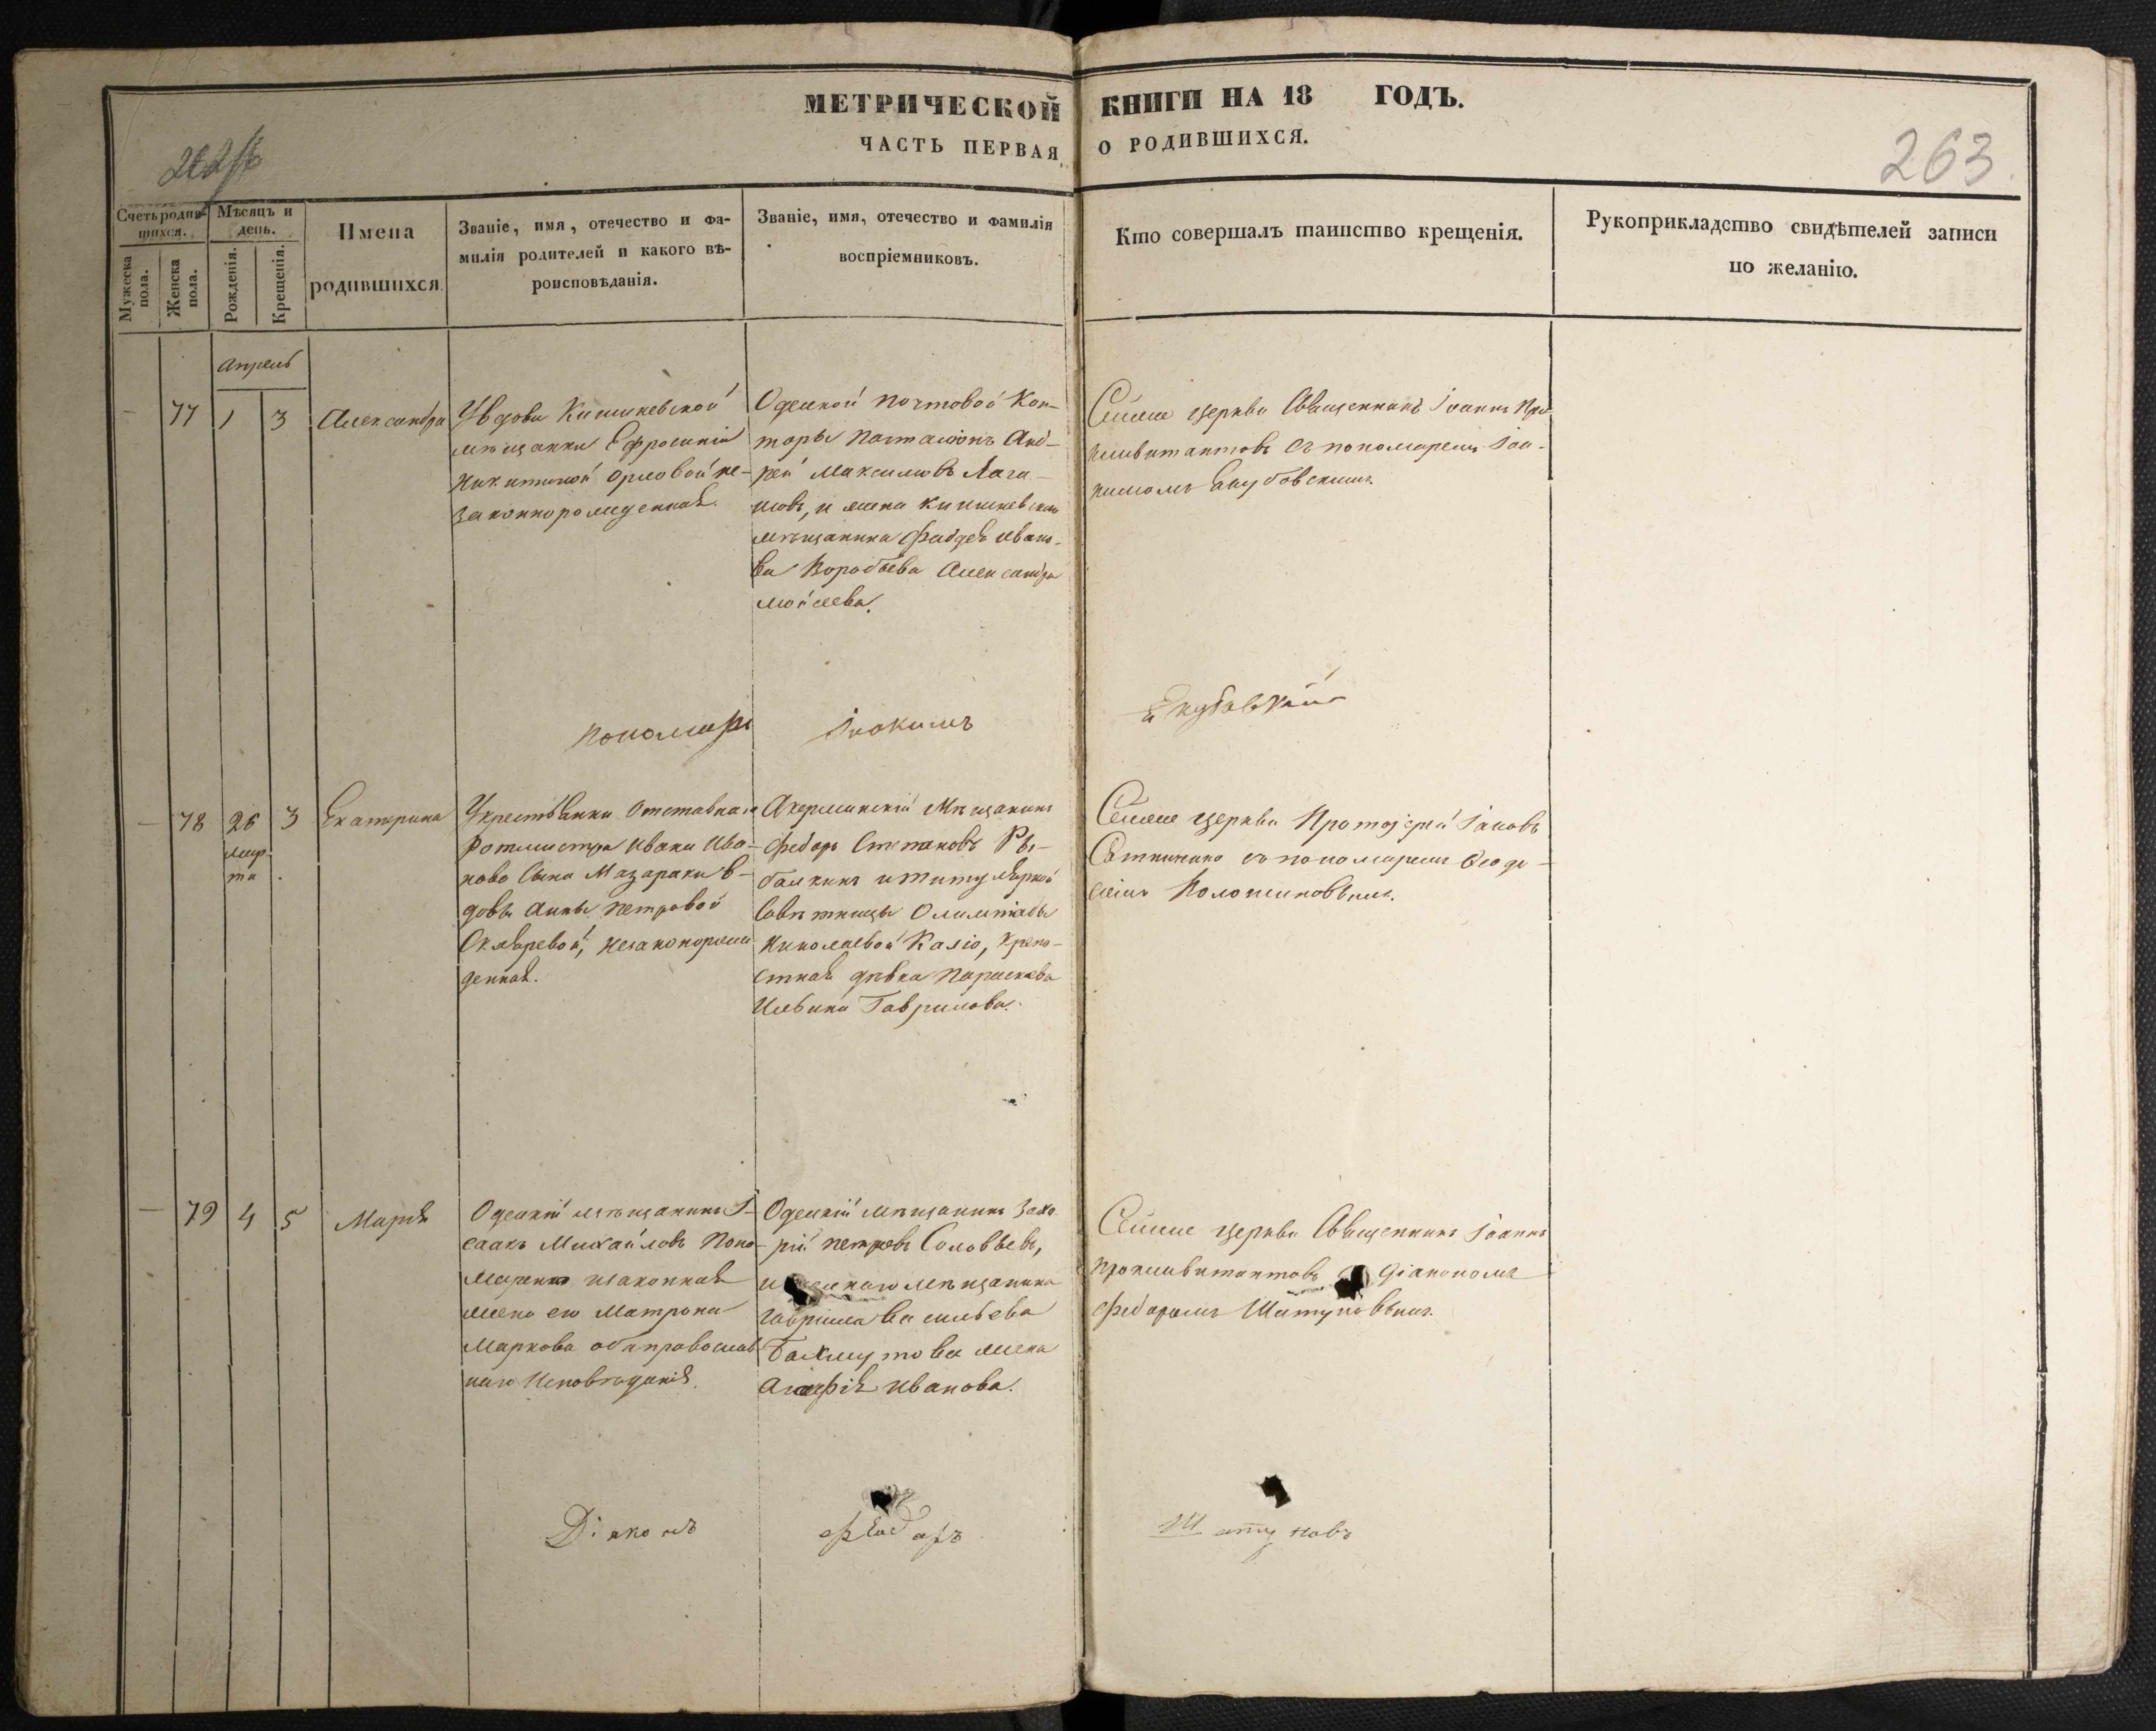 МЕТРИЧЕСКОЙ КНИГИ НА 18 ГОДЪ.
ЧАСТЬ ПЕРВАЯ О РОДИВШИХСЯ.
263
Счетъ родив-
шихся.
Мужеска пола.
Женска пола.
Мѣсяцъ и
день.
Рожденія.
Крещенія.
Имена
родившихся.
Званіе, имя, отечество и фа-
милія родителей и какого вѣ-
роисповѣданія.
Званіе, имя, отечество и фамилія
воспріемниковъ.
Кто совершалъ таинство крещенія.
Рукоприкладство свидѣтелей записи
по желанію.
Апрель
77 1 3 Александра
Увдовы Кишиневской
мѣщанки Ефросиніи
Никитиной Орловой не-
законнорожденная.
Одеской Почтовой Кон-
торы Почталіонъ Анд-
рей Максимовъ
и жена Кишиневскаго
мѣщанина Фадѣя Ивано-
ва Воробьева Александра
Мойсеева.
Сей церкви Священникъ Іоаннъ
съ пономаремъ Іоа-
кимомъ Якубовскимъ.
Пономарь Іоакимъ Якубовскій
78 26 3 Екатерина
мар-
та
Укрестьянки Отставнаго
Ротмистра Ивана Ива-
нова Сына Мазараки в-
довы Анны Петровой
незаконорож-
денная.
Акерманскій Мѣщанинъ
Федоръ Степановъ Ры-
балкинъ и титулярной
Совѣтницы Олимпіады
Николаевой Каліо, крепо-
стная дѣвка Параскева
Ильина Гаврилова.
церкви Протоіерей Іаковъ
Сатниченко съ пономаремъ Феодо-
сіемъ
79 4 5 Марія
Одескій мѣщанинъ І-
саакъ Михайловъ Поно-
маренко и законная
жена его Матрона
Маркова оба православ
наго Исповѣданія.
Одескій мѣщанинъ Заха-
рій Петровъ Соловьевъ,
мѣщанина
Гаврила Васильева
Бахмутова жена
Агафія Иванова.
церкви Священникъ Іоаннъ
Діакономъ
Федоромъ Шатуновымъ.
Діаконъ Федоръ Шатуновъ